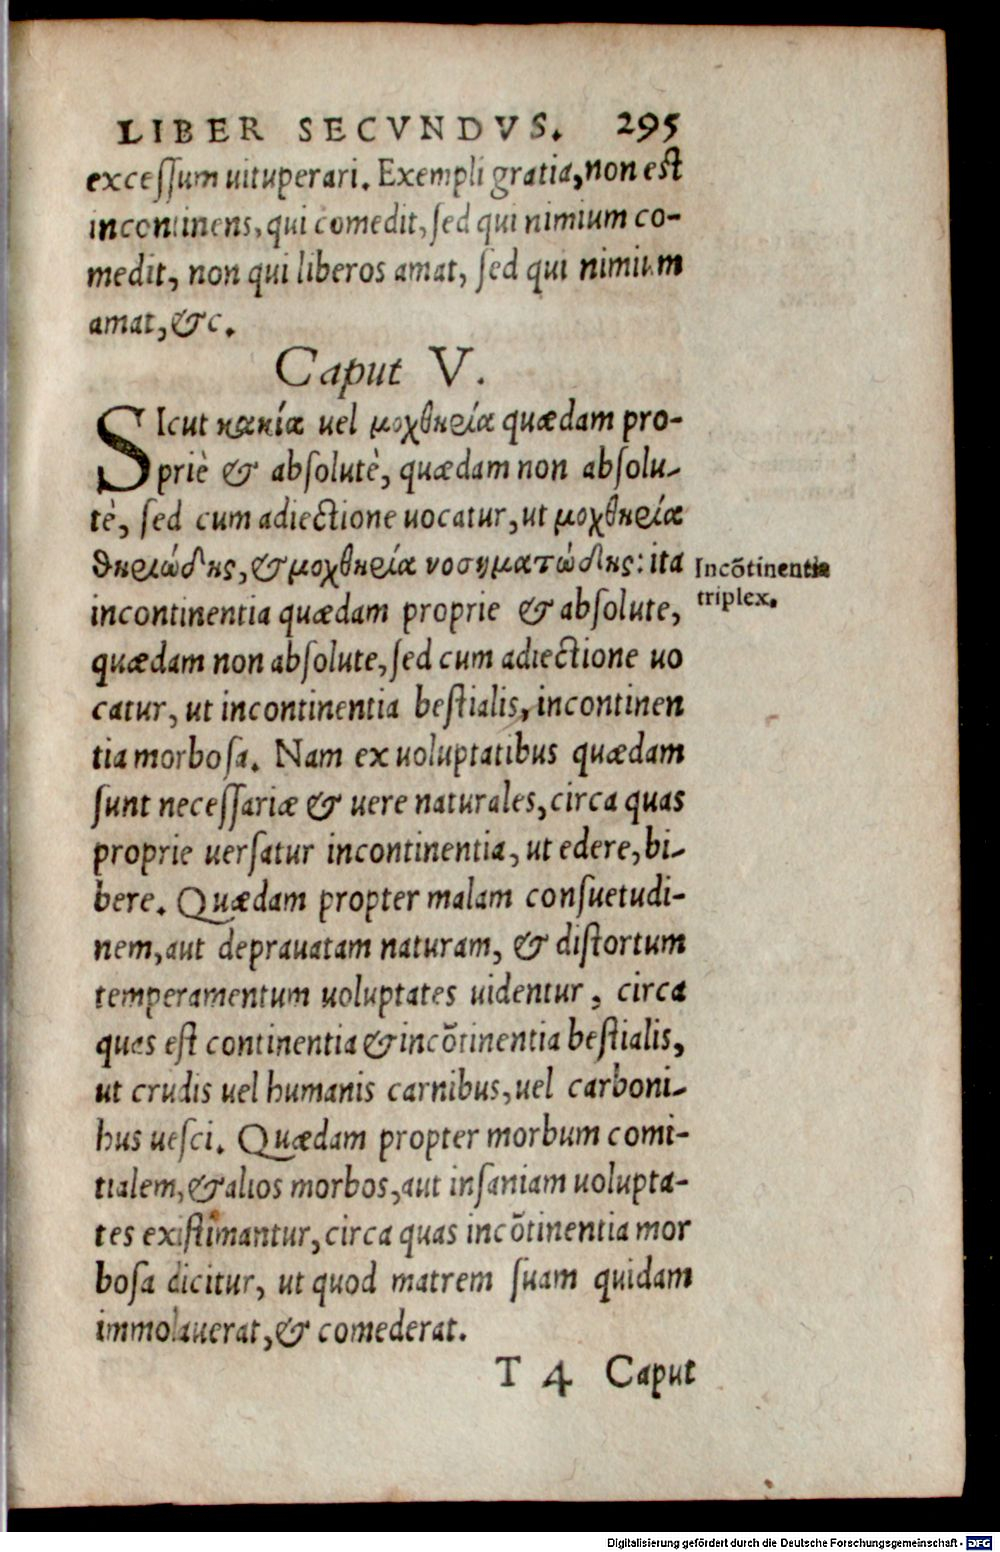 LIBER SECVNDVS. 295
excessum uituperari. Exempli gratia, non est
incontinens, qui comedit, sed qui nimium co-
medit, non qui liberos amat, sed qui nimium
amat, &c.
Caput V.
SIcut κακία uel μοχθηρία quædam pro-
priè & absolutè, quædam non absolu-
tè, sed cum adiectione uocatur, ut μοχθηρία
θηριώδης, & μοχθηρία νοσηματώδης: ita
Incõtinentia
triplex.
incontinentia quædam proprie & absolute,
quædam non absolute, sed cum adiectione uo
catur, ut incontinentia bestialis, incontinen
tia morbosa. Nam ex uoluptatibus quædam
sunt necessariæ & uere naturales, circa quas
proprie uersatur incontinentia, ut edere, bi-
bere. Quædam propter malam consuetudi-
nem, aut deprauatam naturam, & distortum
temperamentum uoluptates uidentur, circa
quas est continentia & incõtinentia bestialis,
ut crudis uel humanis carnibus, uel carboni-
bus uesci. Quædam propter morbum comi-
tialem, & alios morbos, aut insaniam uolupta-
tes existimantur, circa quas incõtinentia mor
bosa dicitur, ut quod matrem suam quidam
immolauerat, & comederat.
T 4 Caput
Digitalisierung gefördert durch die Deutsche Forschungsgemeinschaft - DFG